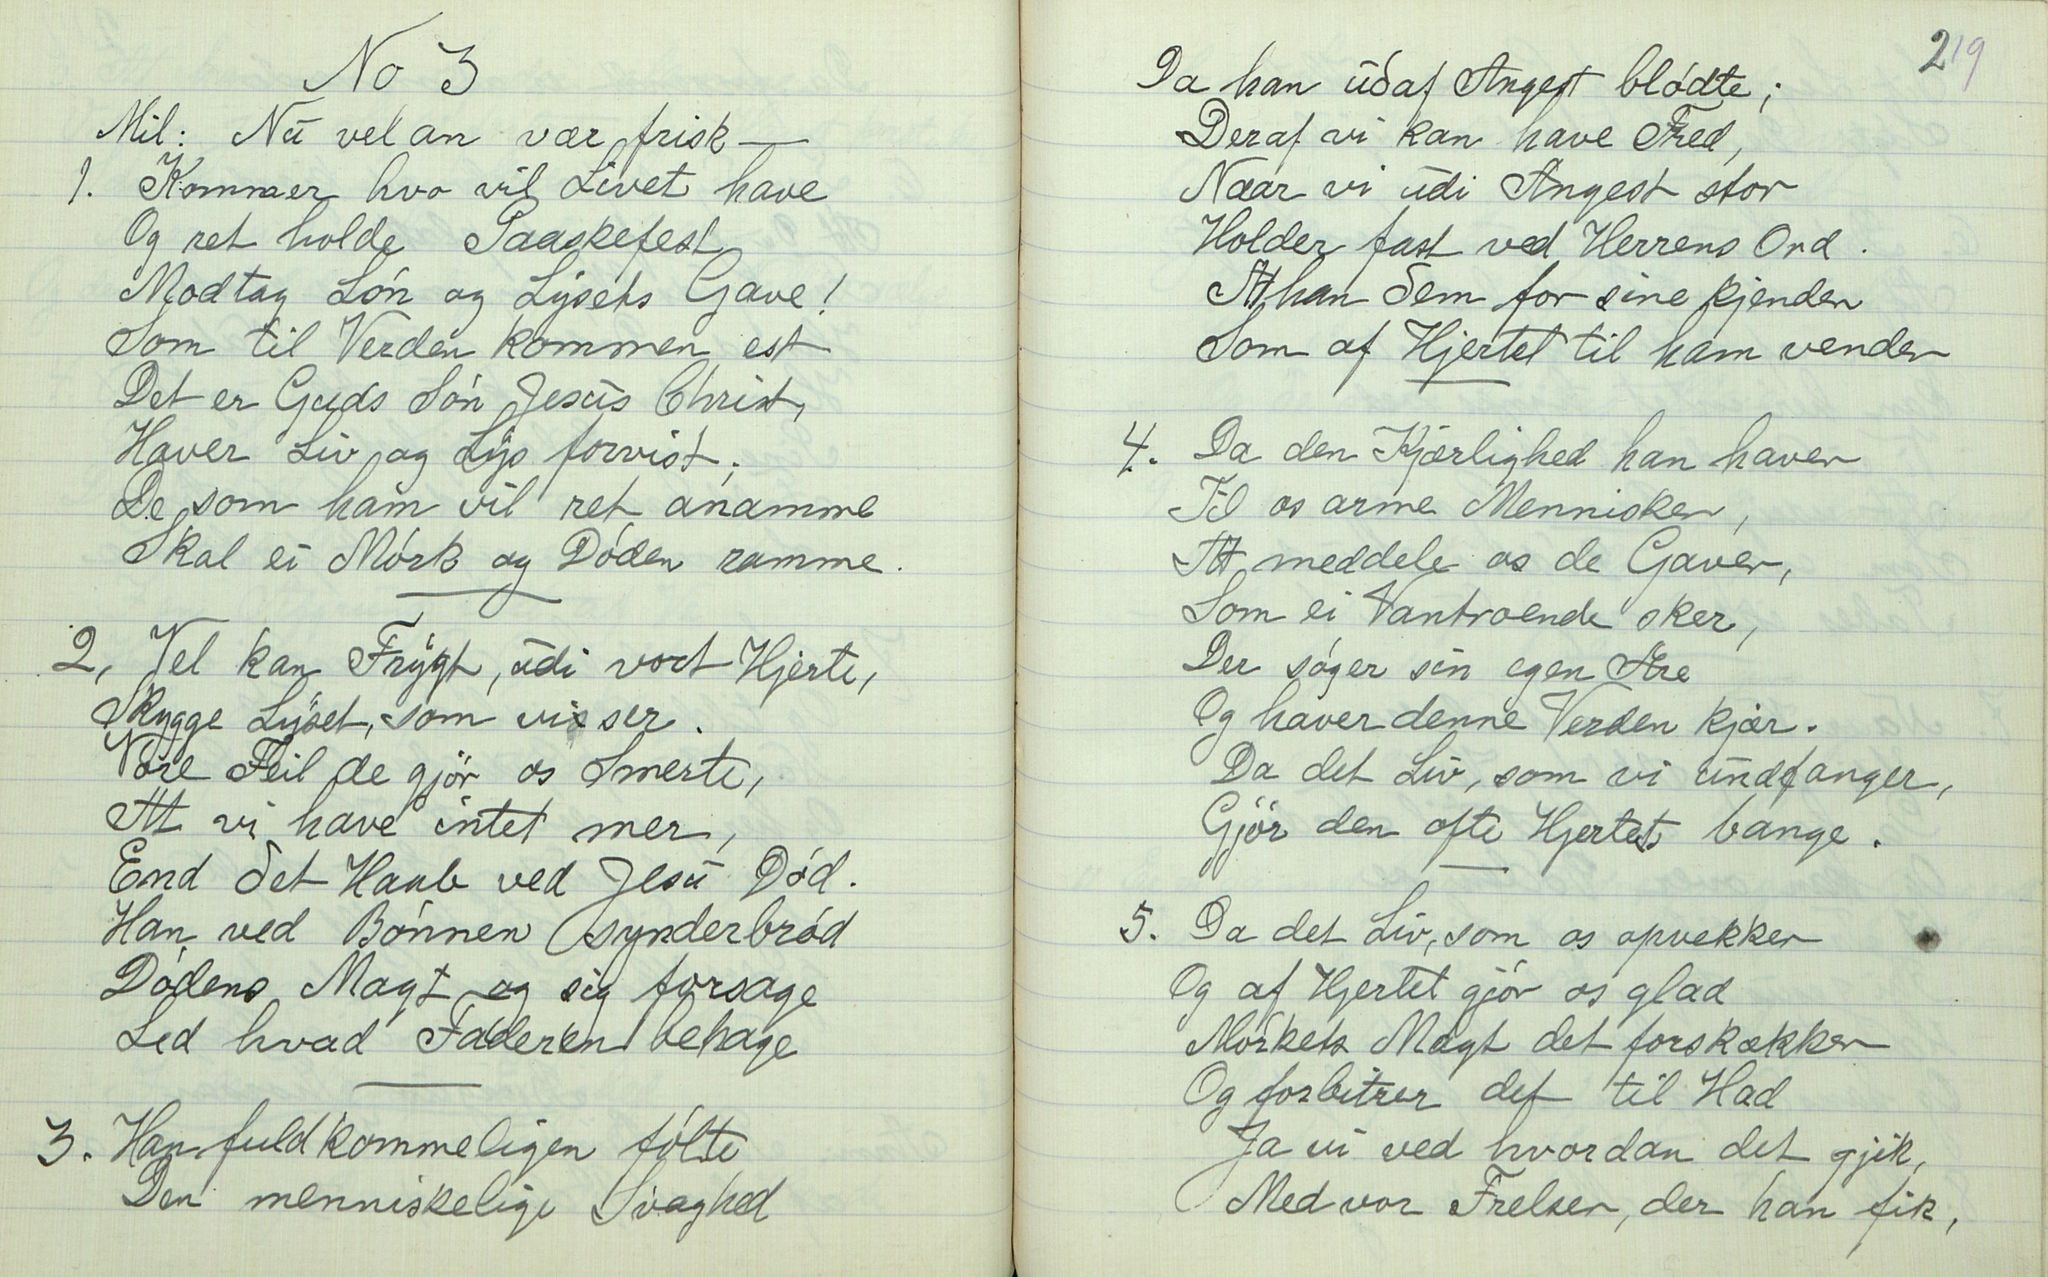 No 3
Mil: Nu vel an vær frisk —
1. Kommer hvo vil Livet have
Og ret holde Paaskefest
Modtag Lón og Lysets Gave!
Som til Verden kommen est
Det er Guds Són Jesus Christ,
Haver Liv og Lys forvist.
De som ham vil ret anamme
Skal ei Mórk og Dóden ramme.
2, Vel kan Frygt, udi vort Hjerte,
Skygge Lyset, som vi ser.
Vore Feil de gjör os Smerte,
At vi have intet mer,
End det Haab ved Jesu Dód.
Han ved Bónnen synderbród
Dódens Magt og sig forsage
Led hvad Faderen behage
3. Han fuldkommeligen fólte
Den menneskelige Svaghed
219
Da han udaf Angest blódte;
Deraf vi kan have Fred,
Naar vi udi Angest stor
Holder fast ved Herrens Ord.
At han dem for sine kjender
Som af Hjertet til ham vender
4. Da den Kjærlighed han haver
Til os arme Mennisker,
At meddele os de Gaver,
Som ei Vantroende sker,
Der sóger sin egen Ære
Og haver denne Verden kjær.
Da det Liv, som vi undfanger,
Gjör den ofte Hjertets bange.
5. Da det Liv, som os opvekker
Og af Hjertet gjór os glad
Mórkets Magt det forskækker
Og forbitrer det til Had
Ja vi ved hvordan det gjik,
Med vor Frelser, der han fik,